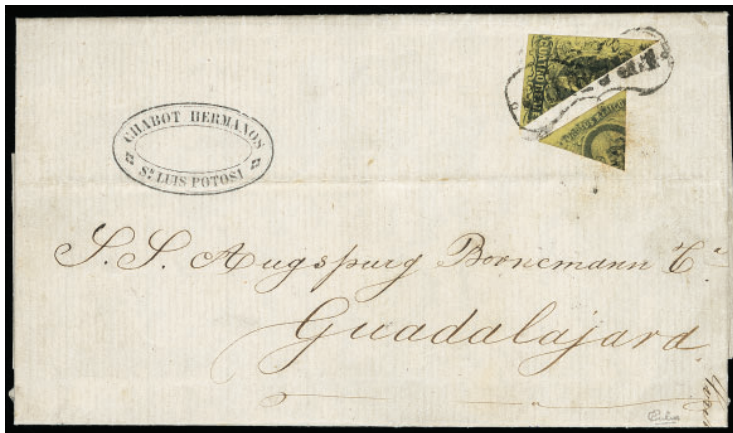 CHABOT HERMANOS
Sn LUIS POTOSI
CUATRO REALES
S. S. Augspurg Bornemann Ca
Guadalajara.